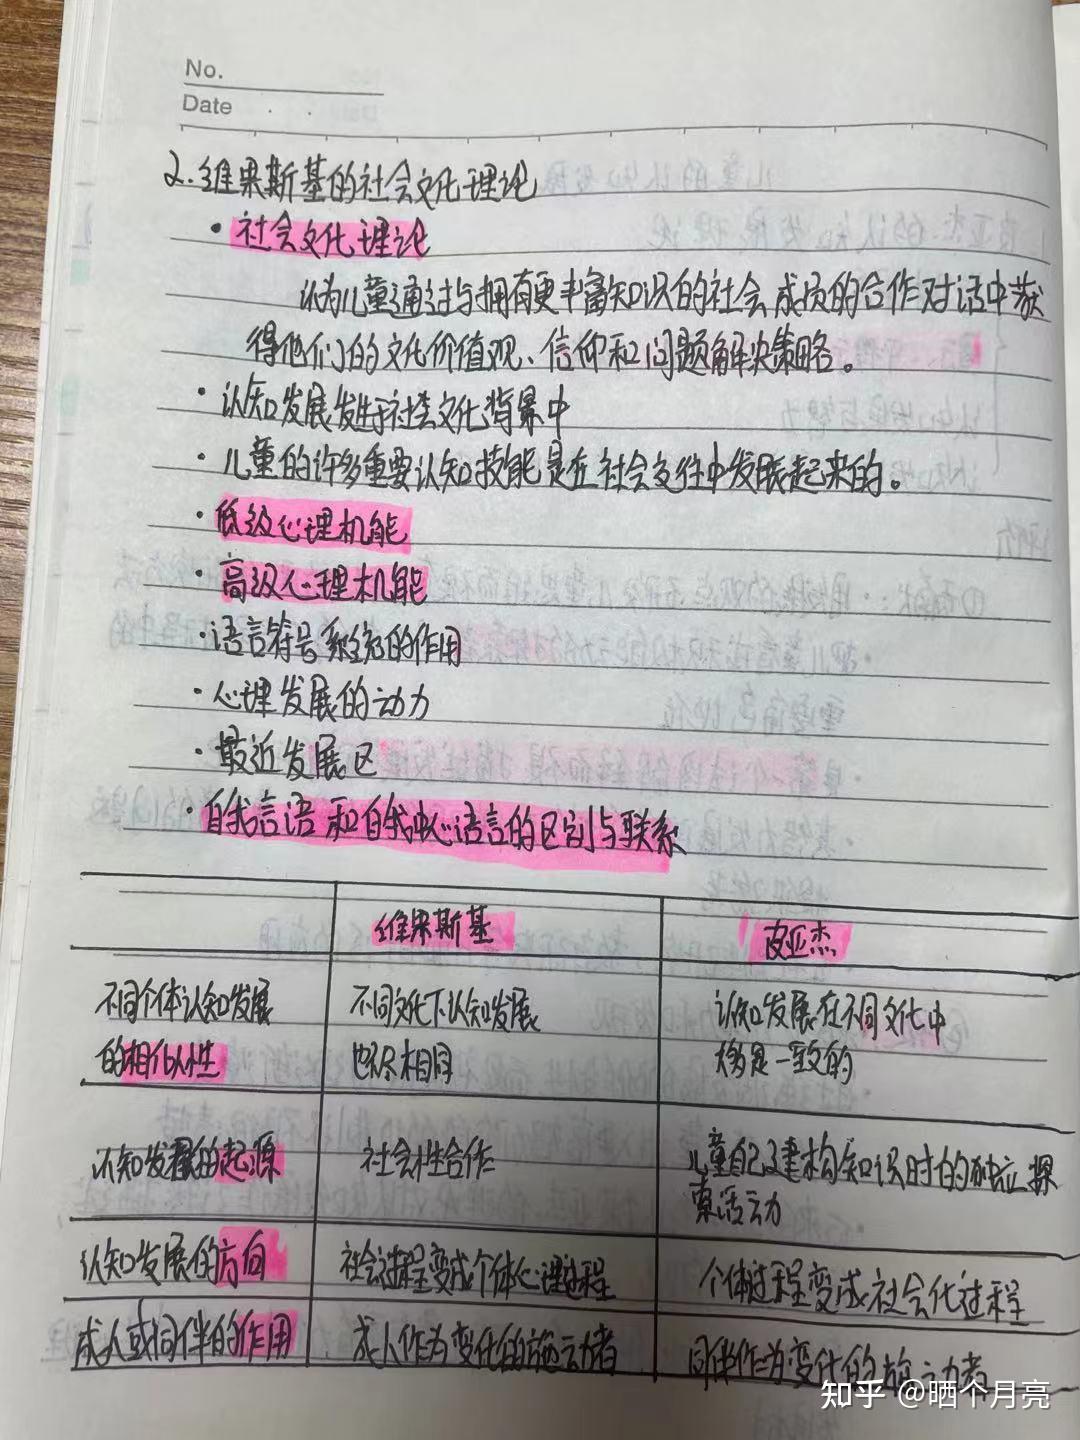 No.
Date
2.维果斯基的社会文化理论
·社会文化理论
认为儿童通过与拥有更丰富知识的社会成员的合作对话中获
得他们的文化价值观、信仰和问题解决策略。
·认知发展发生于社会文化背景中
·儿童的许多重要认知技能是在社会交往中发展起来的。
·低级心理机能
·高级心理机能
·语言符号系统的作用
·心理发展的动力
·最近发展区
·自我言语和自我中心语言的区别与联系
维果斯基 皮亚杰
不同个体认知发展 不同文化下认知发展 认知发展在不同文化中
的相似性 也不尽相同 大多是一致的
认知发展的起源 社会性合作 儿童自己建构知识时的独立探
索活动
认知发展的方向 社会过程变成个体心理过程 个体过程变成社会化过程
成人或同伴的作用 成人作为变化的施动者 同伴作为变化的施动者
知乎 @晒个月亮